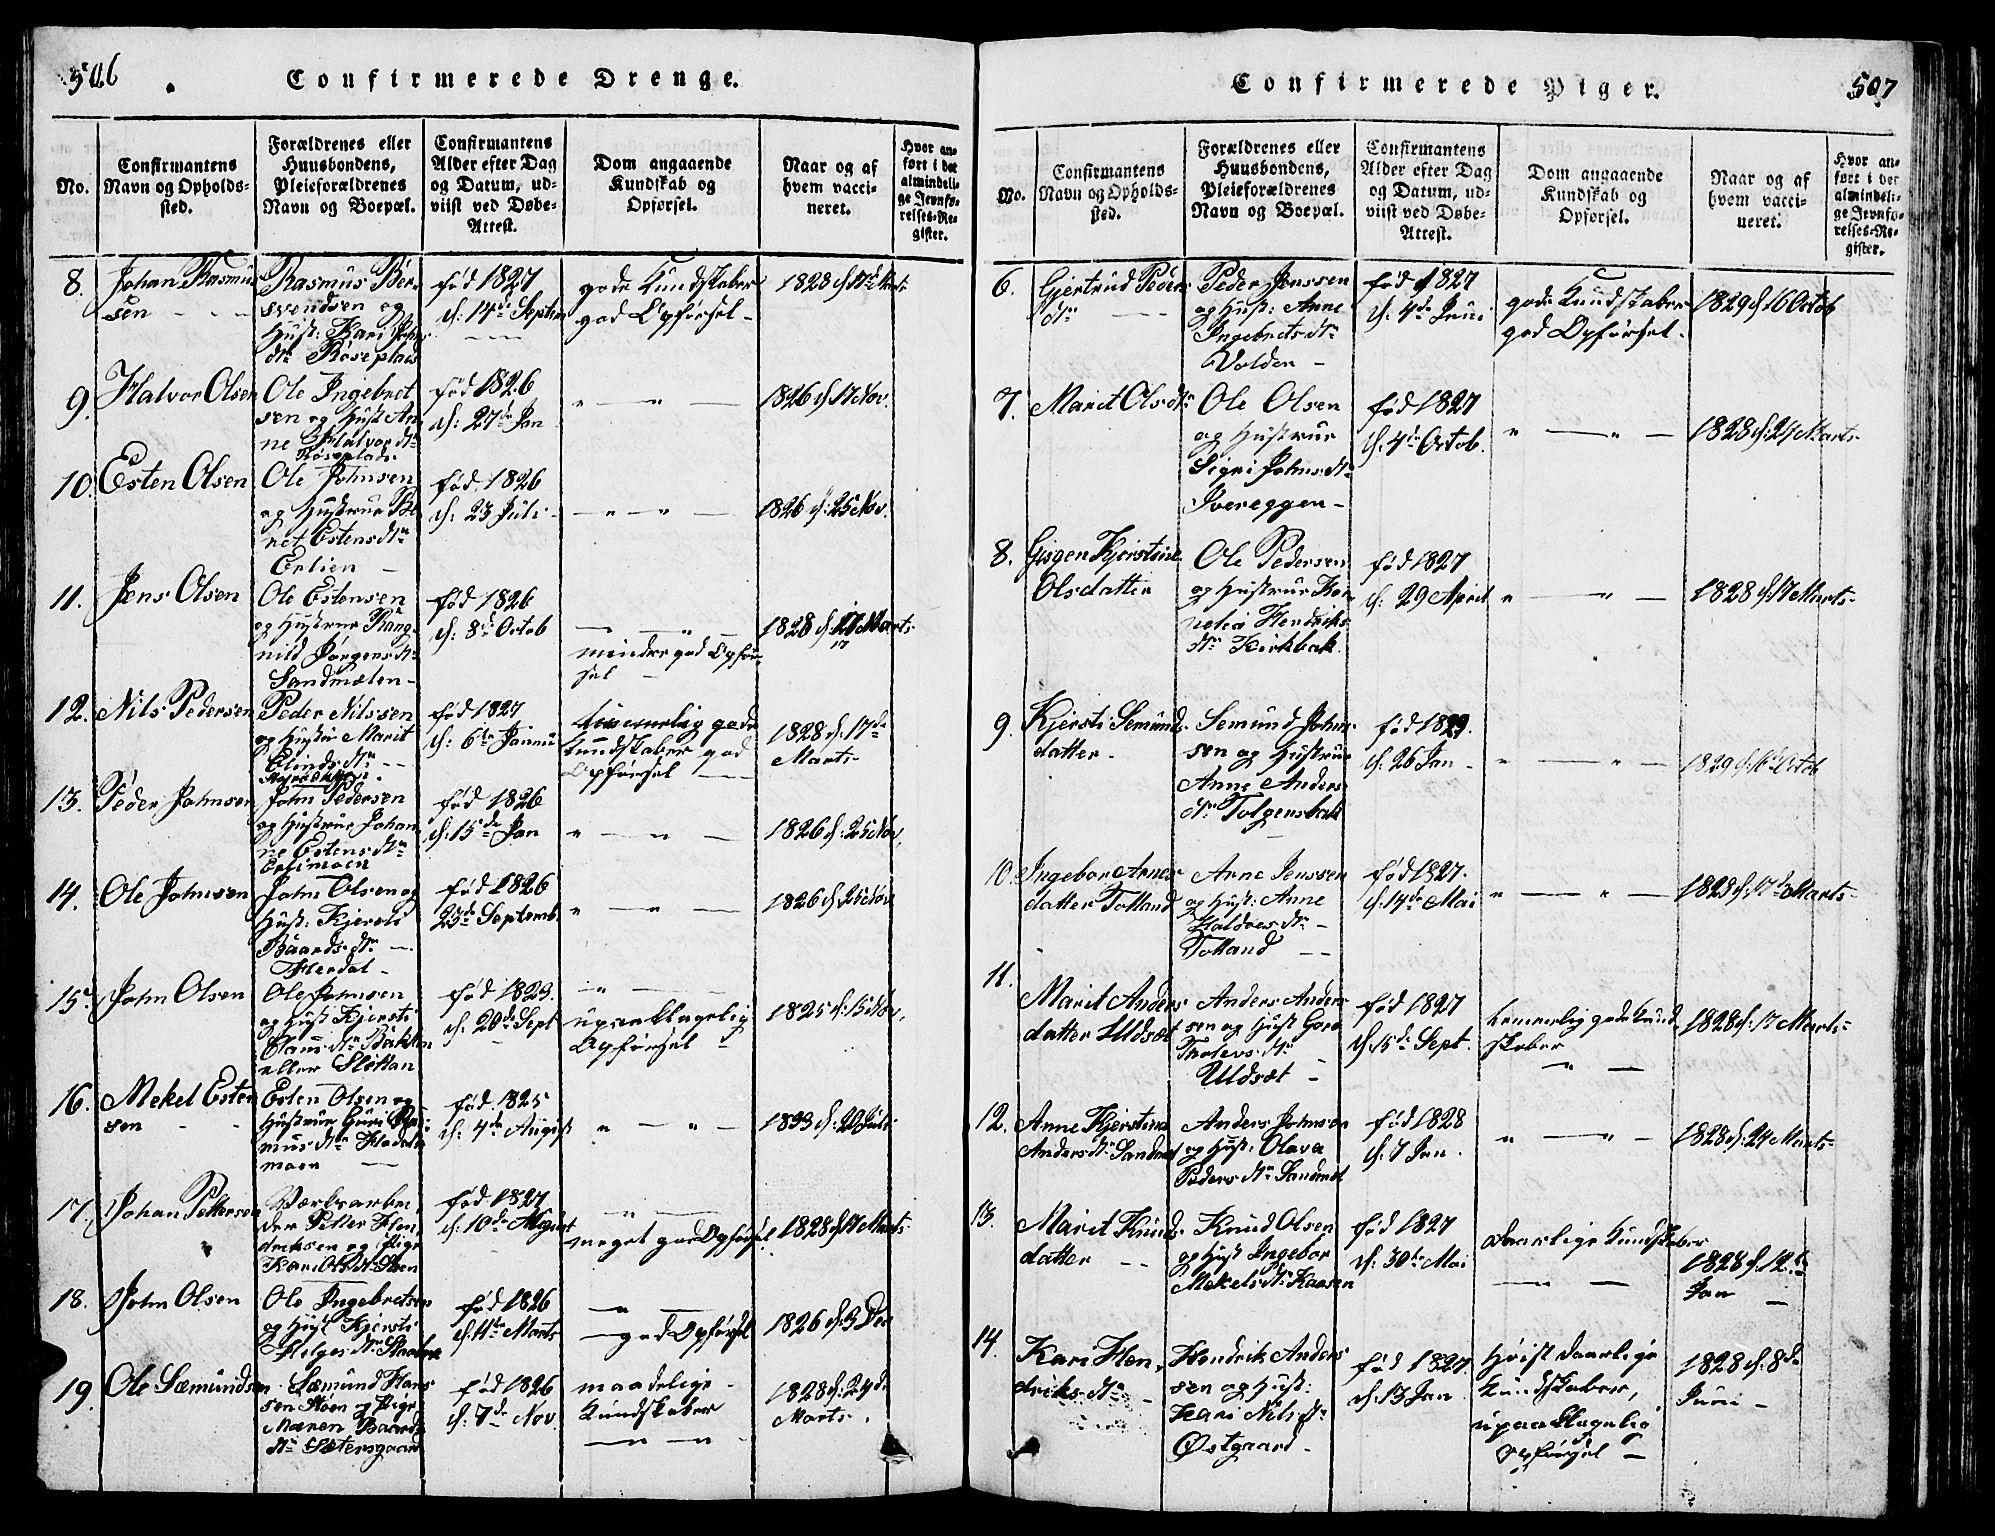 506
Confirmerede Drenge.
No.
Confirmantens
Navn og Opholds-
sted.
Forældrenes eller
Huusbondens,
Pleieforældrenes
Navn og Boepæl.
Confirmantens
Alder efter Dag
og Datum, ud-
viist ved Døbe-
Attest.
Dom angaaende
Kundskab og
Opførsel.
Naar og af
hvem vacci-
neret.
Hvor an-
ført i det
almindeli-
ge Jevnfø-
relses-Re-
gister.
8.
Johan Rasmus
sen
Rasmus Ber
svendsen og
Hust: Kari Johns
dtr Røseplads
fød 1827
d: 14de Septem
gode Kundskaber
god Opførsel -
1828 d 17de Marts
9.
Halvor Olsen
Ole Ingebret
sen og Hust An
ne Halvordtr
Røseplads
fød 1826
d: 27de Jan
" — " —
1826 d 17 Nov.
10.
Esten Olsen
Ole Johnsen
og Hustrue Be
ret Estensdtr
Erlien -
fød 1826
d: 23 Juli -
— " — " —
1826 d: 25 Nov.
11.
Jens Olsen
Ole Estensen
og Hustrue Rang
nild Jørgensdtr
Sandmælen -
fød 1826
d: 8de Octob
— " —
mindre god Opfør
sel -
1828 d. 17 Marts
17
12.
Nils Pedersen
Peder Nilssen
og Hustru Marit
Elindsdtr
fød 1827
d: 6te Janu
temmelig gode
Kundskaber god
Opførsel —
1828 d: 17de
Marts
13.
Peder Johnsen
John Pedersen
og Hustrue Johan
ne Estensdtr
Erlimoen
fød 1826
d: 15de Jan
" — " —
1826 d: 25 Nov.
14.
Ole Johnsen
John Olsen og
Hust: Kjersti
Baardsdtr -
Herdal -
fød 1826
23de Septemb
" — " —
1826 d 25 Nov
15.
John Olsen
Ole Johnsen
og Hust Kjersti
Clausdtr Bakken
eller Sletten
fød 1823.
d. 20de Sept
" —
upaaklagelig
Opførsel -
1825 d: 15 Nov.
16.
Mekel Esten
sen - -
Esten Olsen og
Hustrue Guri Ras
musdtr Floden
moen —
fød 1825
d: 4de August
" — " —
1833 d: 20 Juli
17.
Johan Pettersen
Værksarbei
der Petter Hen
driksen og Pige
Kari Olsdtr Støen
fød 1827
d: 10de August
— " —
meget god Opførsel.
1828 d 17 Marts
18.
John Olsen
Ole Ingebretsen
og Hust Kjersti
Helgesdtr
fød 1826
d: 11te Marts
— " —
— god Opførsel
1826 d: 3 Dec
19.
Ole Sæmundsen
Sæmund Hans
sen Støen og Pige
Maren Baards
dtr Sætersgaard
fød 1826
d: 7de Nov.
maadelige
Kundskaber
— " —
1828 d: 24de
Marts.
507
Confirmerede Piger.
No.
Confirmantens
Navn og Opholds-
sted.
Forældrenes eller
Huusbondens,
Pleieforældrenes
Navn og Boepæl.
Confirmantens
Alder efter Dag
og Datum, ud-
viist ved Døbe-
Attest.
Dom angaaende
Kundskab og
Opførsel.
Naar og af
hvem vacci-
neret.
Hvor an-
ført i det
almindeli-
ge Jevnfø-
relses-Re-
gister.
6.
Gjertrud Peders
dtr —
Peder Jonssen
og Hust: Anne
Ingebretsdtr
Volden -
fød 1827
d: 4de Juni
gode Kundskaber
god Opførsel -
1829 d 16 Octob
7.
Marit Olsdtr
Ole Olsen
og Hustrue
Sigri Johnsdtr
Ivereggen -
fød 1827
d: 4de Octob.
" — " —
1828 d: 24 Marts
8.
Gisgen Kjerstine
Olsdatter
Ole Pedersen
og Hustrue Kor
nelia Hendriks
dtr Kirkbak.
fød 1827
d: 29 April
" — " —
1828 d 17 Marts
9.
Kjersti Semund
datter -
Semund John
sen og Hustrue
Anne Anders
dtr Tolgensbak
fød 1829.
d: 26 Jan -
" — " —
1829 d. 16 Octob
10.
Ingebor Arnes
datter Tolland
Arne Jenssen
og Hust: Anne
Haldorsdtr -
Tolland —
fød 1827.
d: 14de Mai
" — " —
1828 d: 17de Marts
11.
Marit Anders
datter Uldsæt
Anders Anders
sen og Hust Goro
Tholevsdtr -
Uldsæt -
fød 1827
d: 15de Sept.
temmelig gode Kund
skaber
" —
1828 d. 17 Marts
12.
Anne Kjerstina
Andersdtr Sandnæt
Anders Johnsen
og Hust: Olava
Pedersdtr Sandnæt
fød 1828
d: 7 Jan.
" — " —
1828 d. 24 Marts
13.
Marit Knuds
datter - -
Knud Olsen
og Hust Ingebor
Mekelsdtr Kaasen
fød 1827
d: 30te Mai
Daarlige Kundskaber
— " —
1828 d. 12te
Jan -
14.
Kari Hen
driksdtr -
Hendrik Anders
sen og Hust:
Kari Nilsdtr
Østgaard -
fød 1827
d: 13 Jan
høist daarlige
Kundskaber,
upaaklagelig
Opførsel -
1828 d: 8de
Juni -